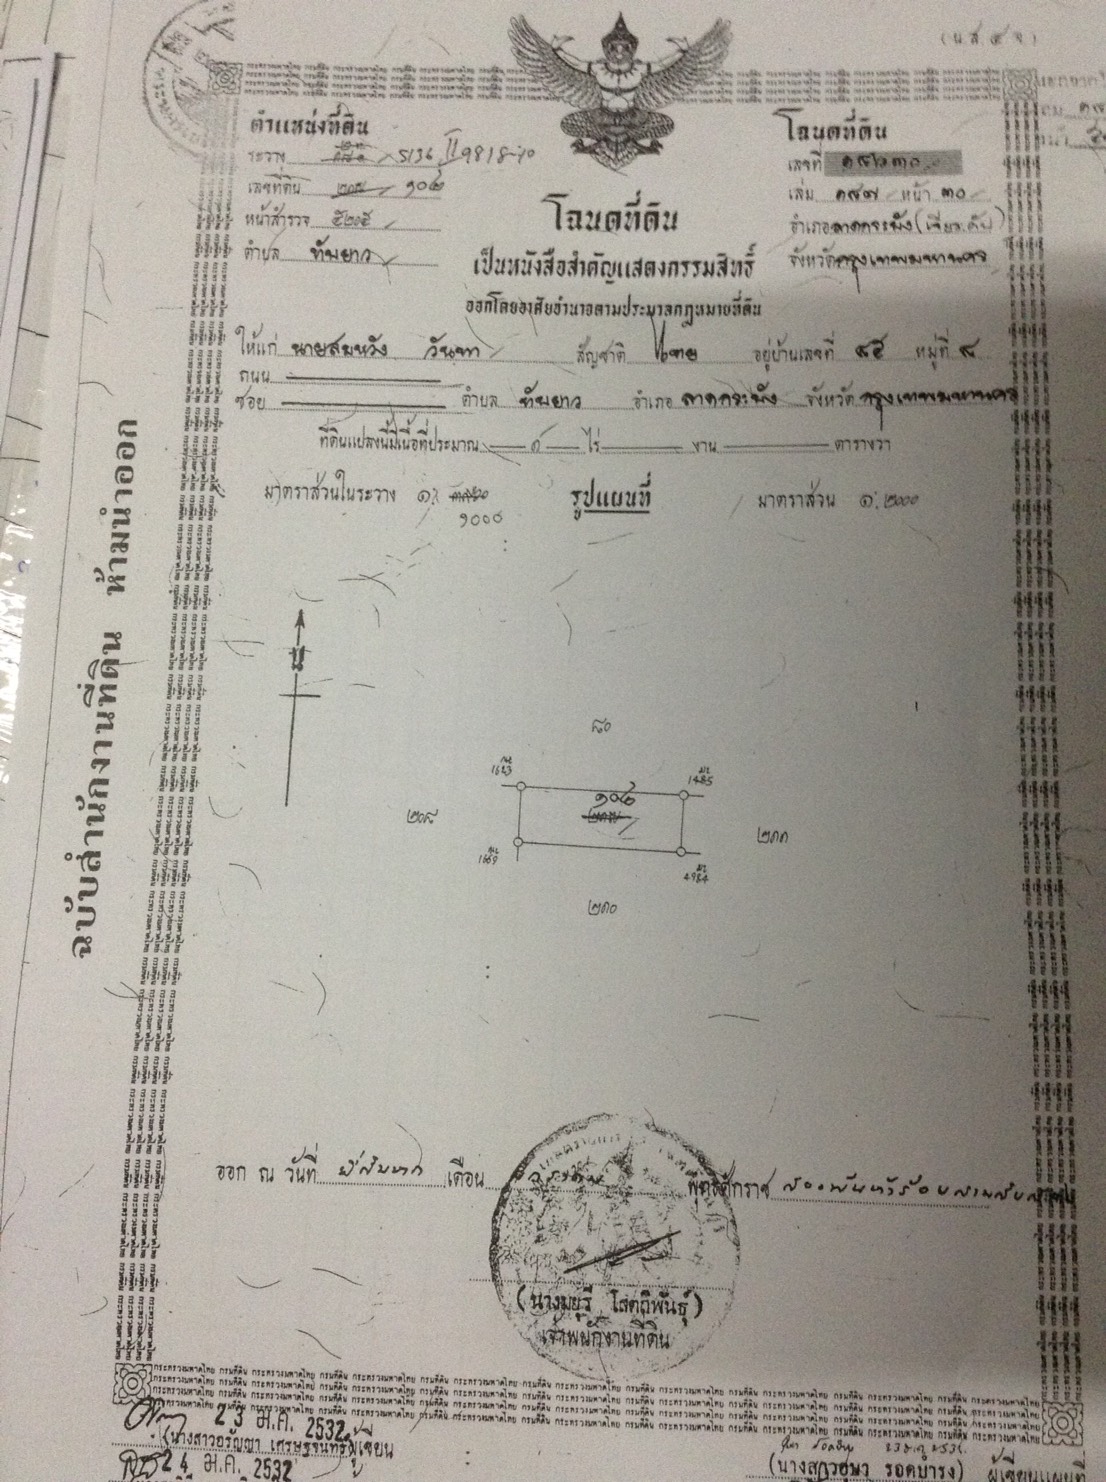 (น.ส. ๔ จ)
ตำแหน่งที่ดิน
ระวาง 5136 II 9818-10
เลขที่ดิน ๑๐๒
หน้าสำรวจ ๕๒๐๕
ตำบล ทับยาว
โฉนดที่ดิน
เลขที่
เล่ม ๑๔๗ หน้า ๓๐
อำเภอลาดกระบัง
จังหวัดกรุงเทพมหานคร
โฉนดที่ดิน
เป็นหนังสือสำคัญแสดงกรรมสิทธิ์
ออกโดยอาศัยอำนาจตามประมวลกฎหมายที่ดิน
ให้แก่ นายสมหวัง วันทา สัญชาติ ไทย อยู่บ้านเลขที่ ๔๕ หมู่ที่ ๘
ถนน
ซอย ตำบล ทับยาว อำเภอ ลาดกระบัง จังหวัด กรุงเทพมหานคร
ที่ดินแปลงนี้มีเนื้อที่ประมาณ ๑ ไร่ งาน ตารางวา
มาตราส่วนในระวาง ๑: ๑๐๐๐ รูปแผนที่ มาตราส่วน ๑:๒๐๐๐
น
๘๐
1623 1485
๑๐๒
๒๐๘ ๒๑๑
1669 4984
๒๑๐
ฉบับสำนักงานที่ดิน ห้ามนำออก
ออก ณ วันที่ ยี่สิบหก เดือน พุทธศักราช สองพันห้าร้อยสามสิบ
(นางมยุรี โสตถิพันธุ์)
เจ้าพนักงานที่ดิน
กระทรวงมหาดไทย กรมที่ดิน
23 ม.ค. 2532
(นางสาวอรัญญา เศรษฐจันทร์) ผู้เขียน
24 ม.ค. 2532
รอดบำรุง) ผู้เขียนแผนที่